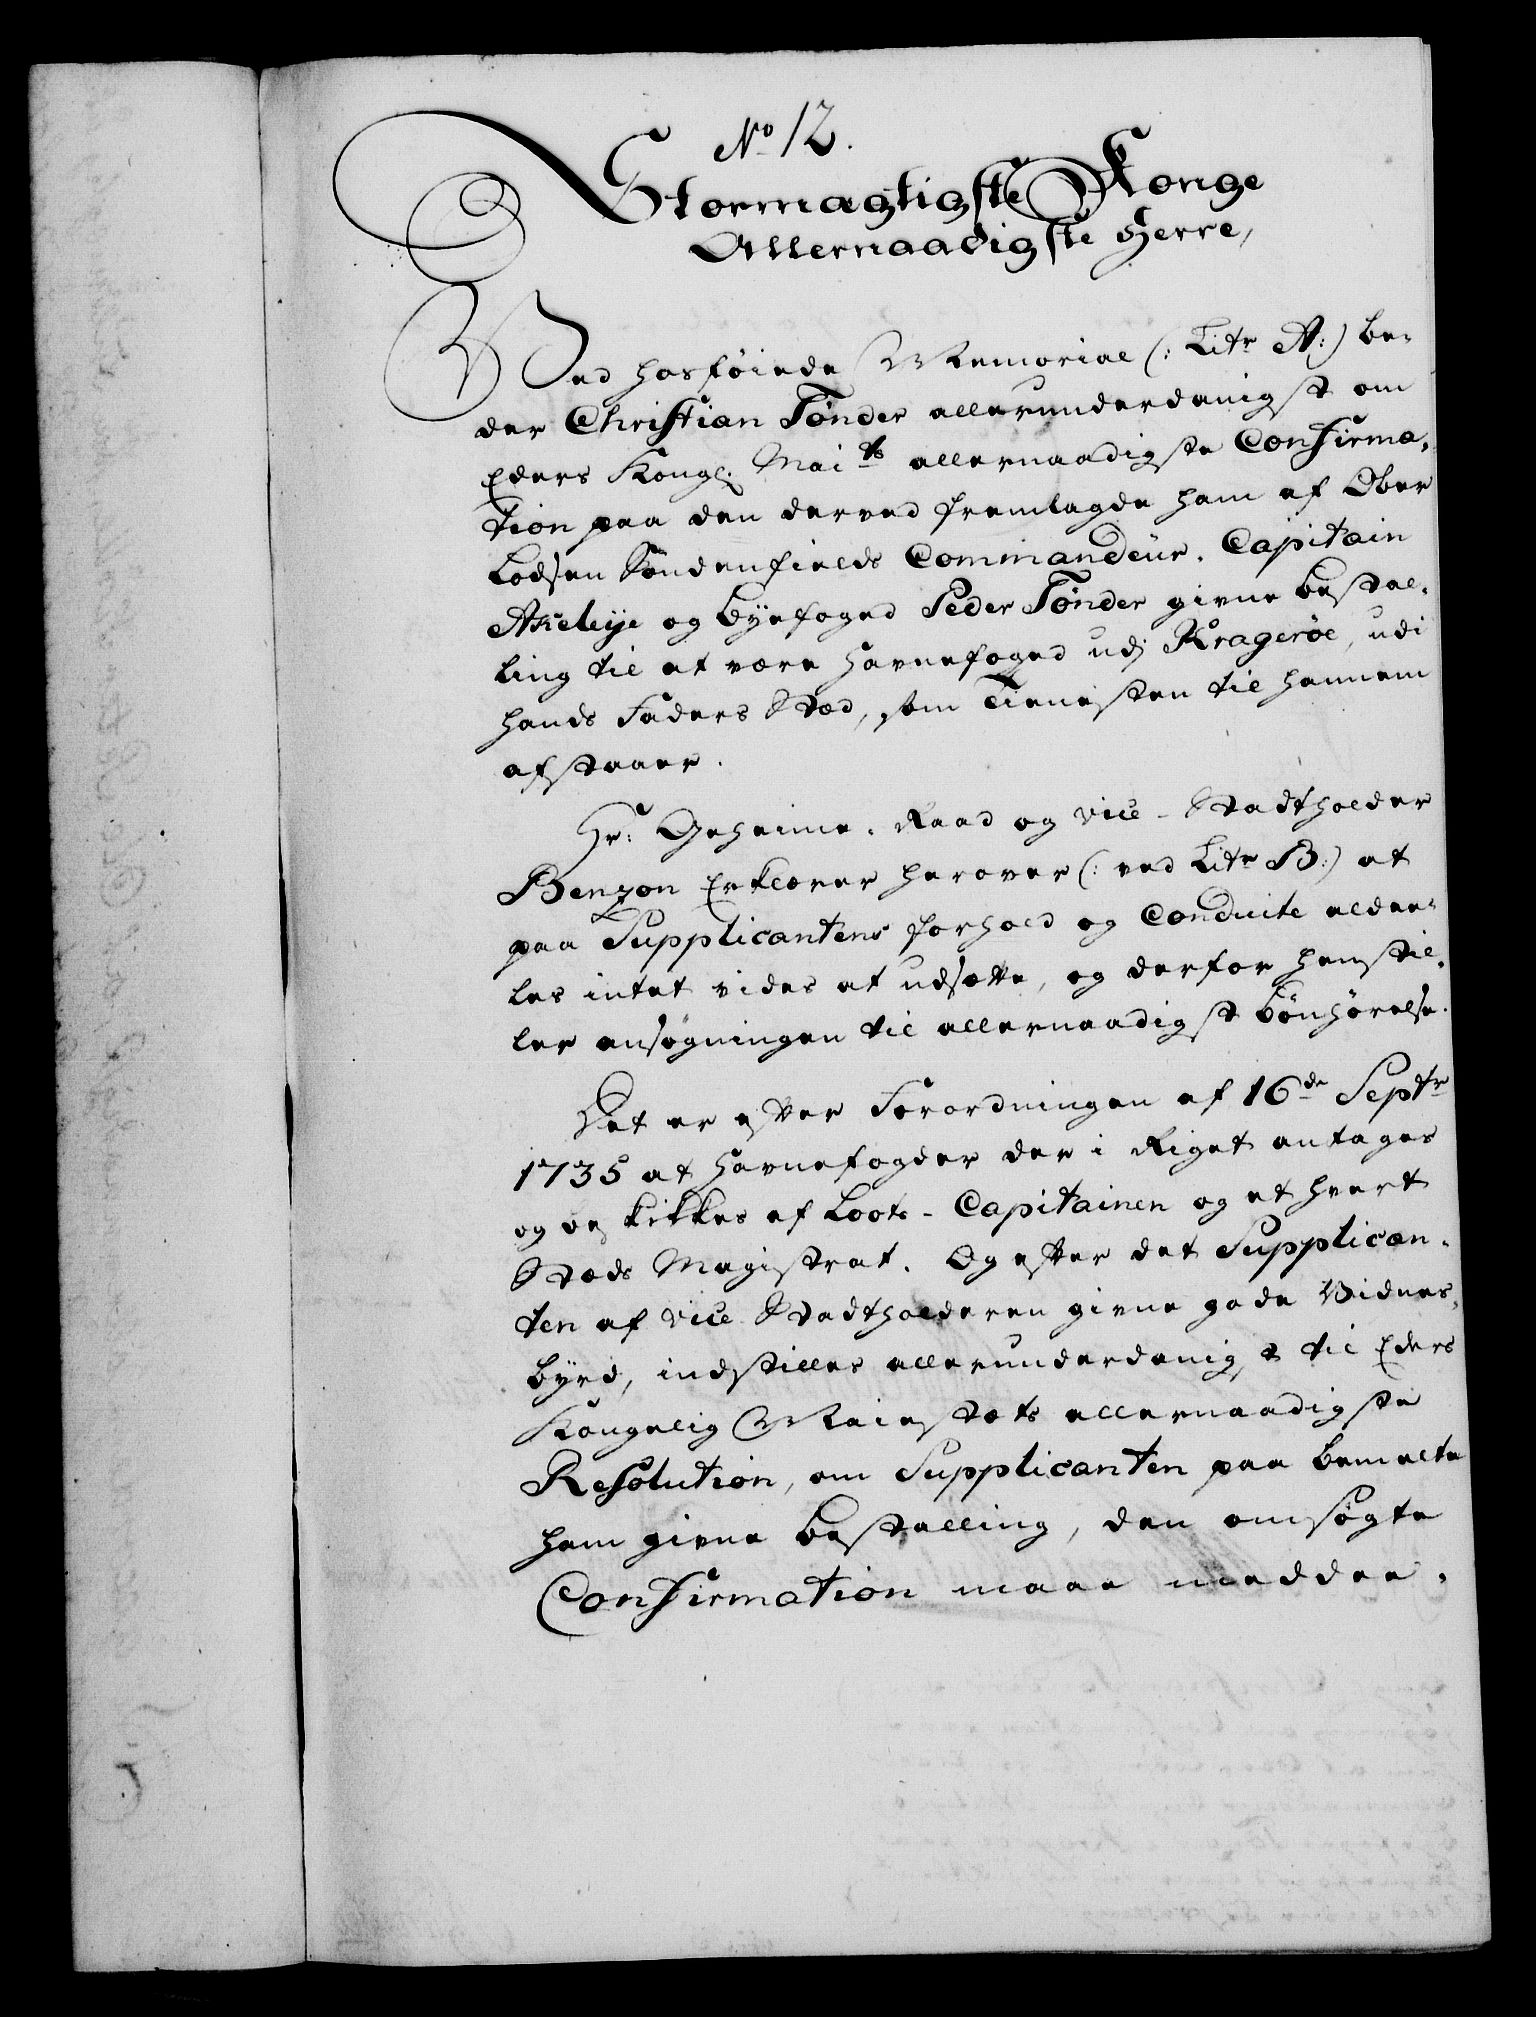 No 12.
Stormægtigste Konge
Allernaadigste Herre,
Ved hosføiede Memorial (: Litr A:) be-
der Christian Tønder allerunderdanigst om
Eders Kongl. Maits allernaadigste Confirma-
tion paa den derved fremlagde ham af Ober
Lodsen Søndenfields Commandeur-Capitain
Akeleye og Byefoged Peder Tønder givne Bestal-
ling til at være Havnefoged udj Kragerøe, udi
hands Faders Stæd, som Tienesten til hannem
afstaaer.
Hr: Geheime-Raad og Vice-Stadtholder
Benzon Erklærer herover (: ved Litr B:) at
paa Supplicantens forhold og Conduite aldee-
les intet vides at udsætte, og derfor henstil-
ler ansøgningen til allernaadigst bønhørelse.
Det er efter Forordningen af 16de Septr
1735 at Havnefogder der i Riget antages
og beskikkes af Loots-Capitainen og et hvert
Stæds Magistrat. Og efter det Supplican-
ten af Vice Stadtholderen givne gode Vidnes-
byrd, indstilles allerunderdanigst til Eders
Kongelig Maiestæts allernaadigste
Resolution, om Supplicanten paa bemelte
ham givne bestalling, den omsøgte
Confirmation maae meddee-